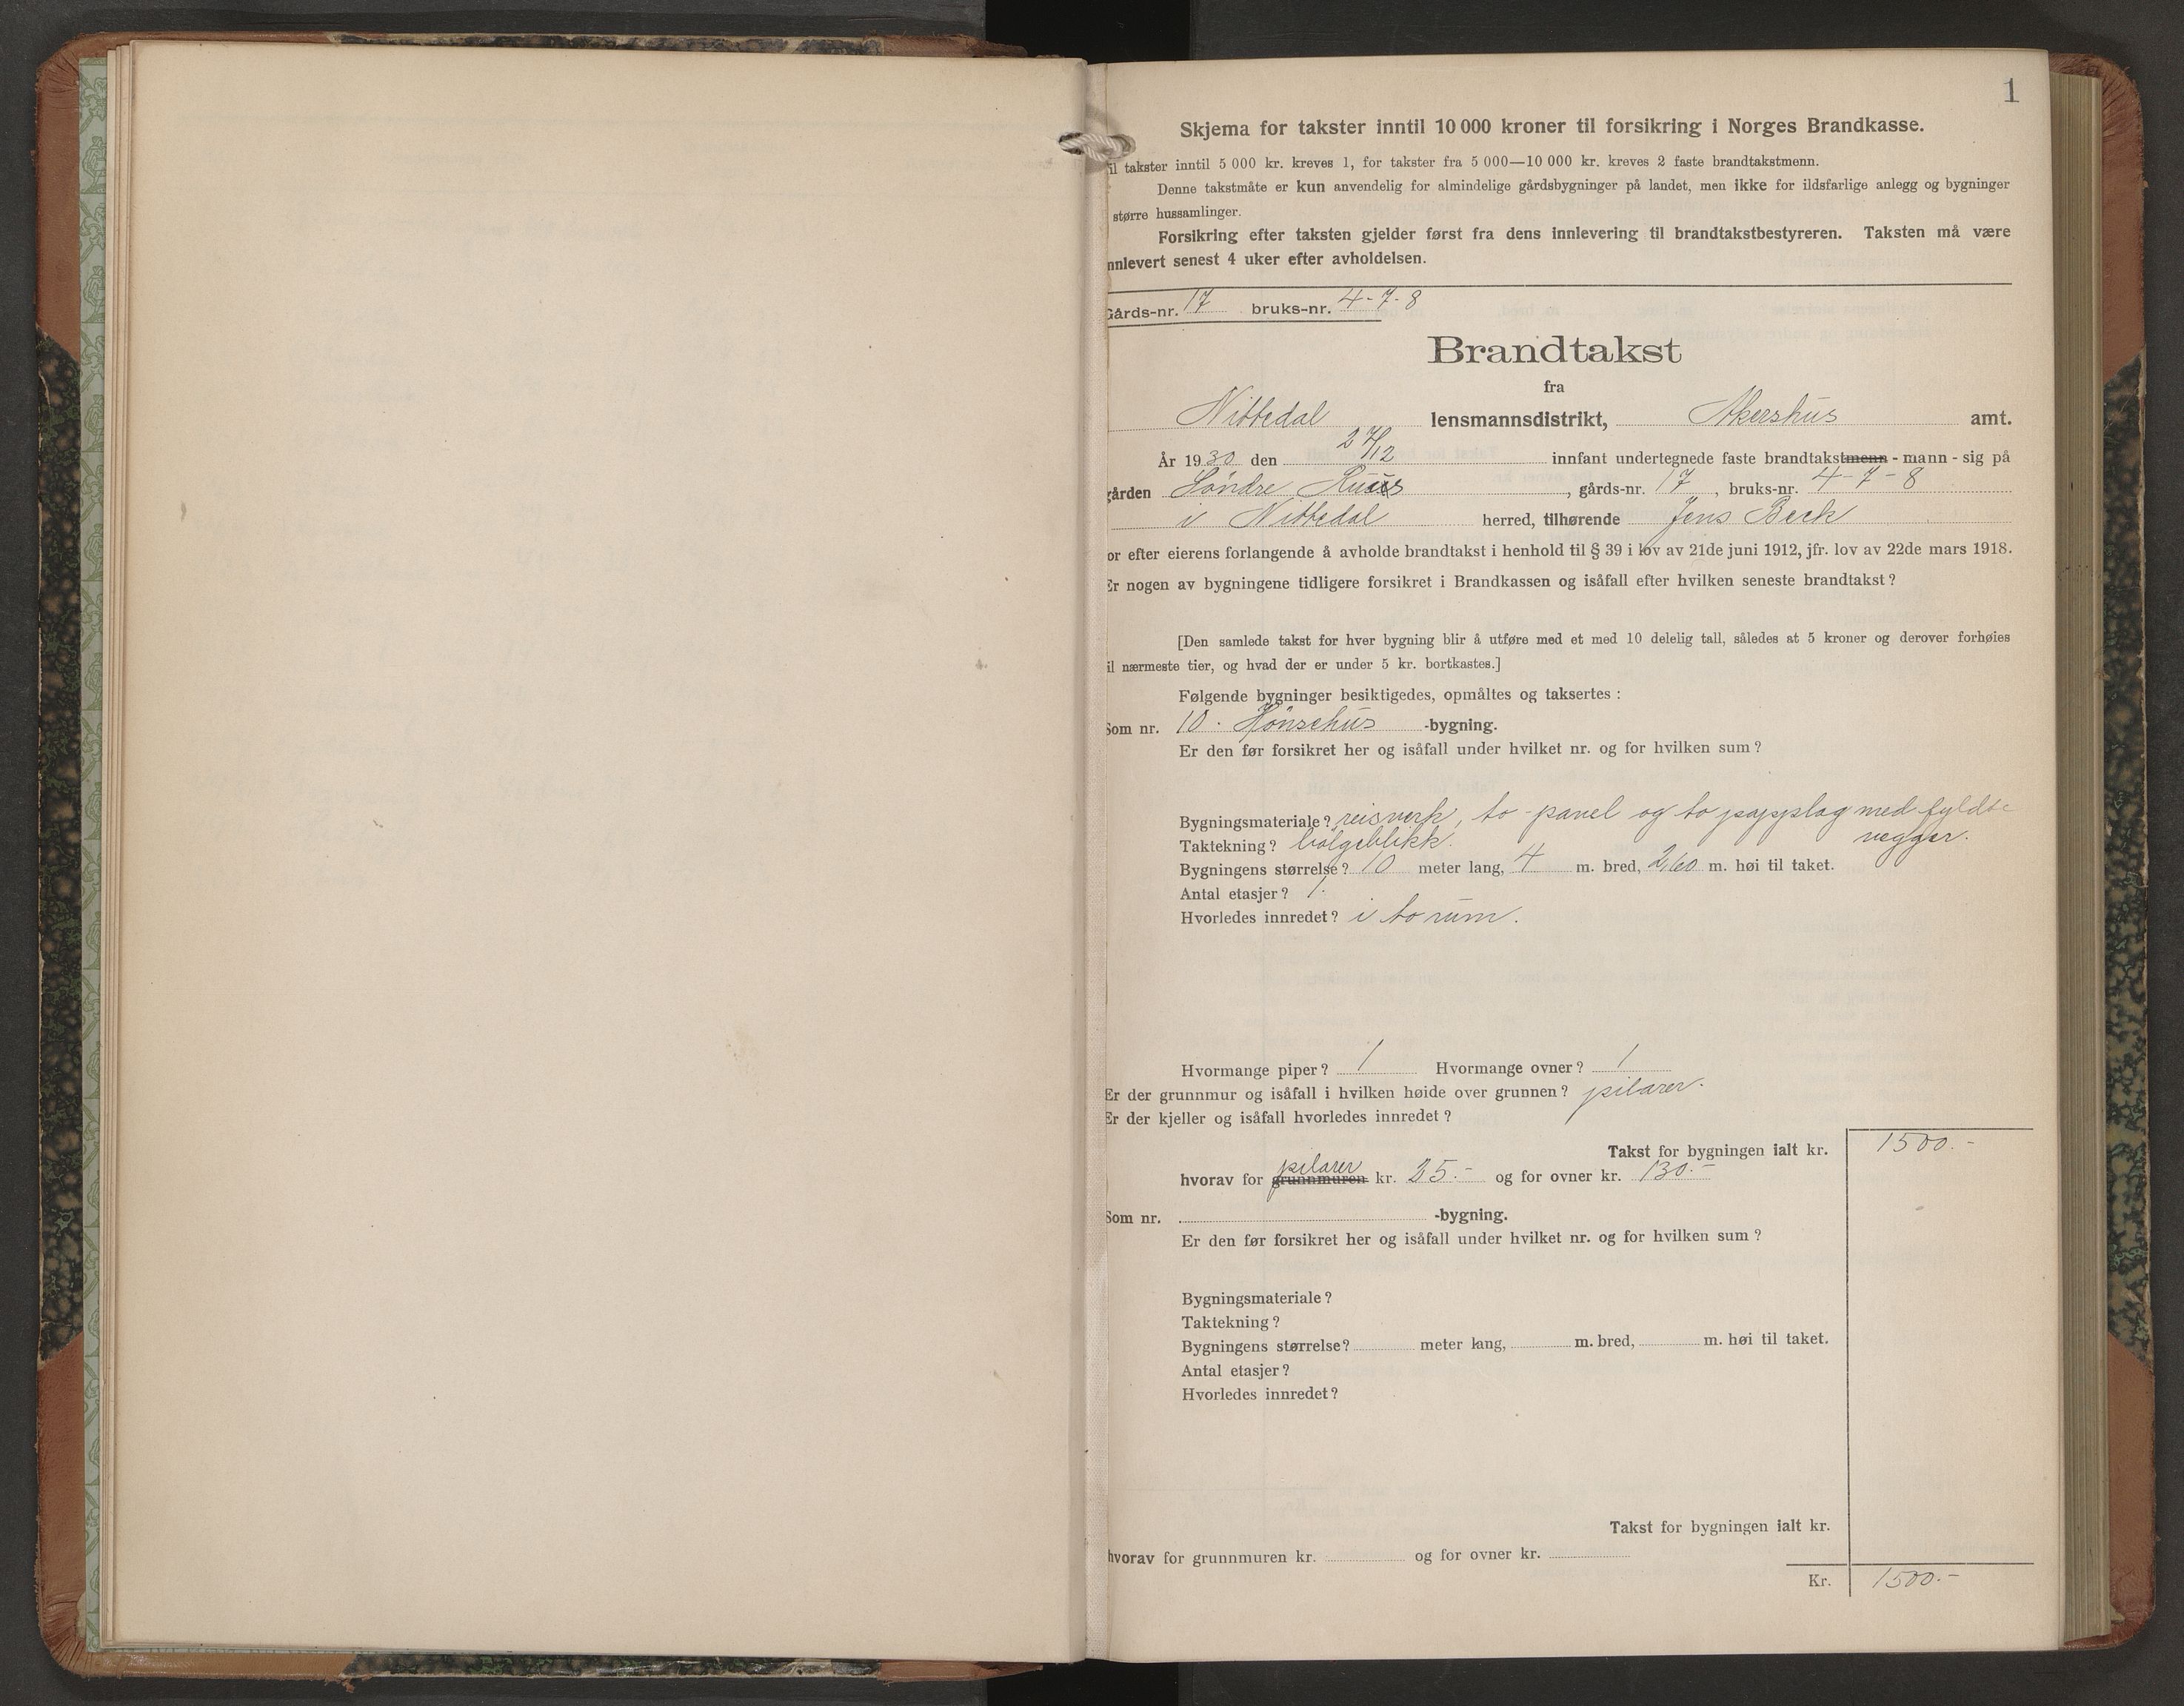 1
Skjema for takster inntil 10 000 kroner til forsikring i Norges Brandkasse.
il takster inntil 5 000 kr. kreves 1, for takster fra 5 000—10 000 kr. kreves 2 faste brandtakstmenn.
Denne takstmåte er kun anvendelig for almindelige gårdsbygninger på landet, men ikke for ildsfarlige anlegg og bygninger
større hussamlinger.
Forsikring efter taksten gjelder først fra dens innlevering til brandtakstbestyreren. Taksten må være
nnlevert senest 4 uker efter avholdelsen.
Gårds-nr. 17 bruks-nr. 4-7-8
Brandtakst
fra
Nittedal lensmannsdistrikt, Akershus amt.
År 1930 den 27/12 innfant undertegnede faste brandtakstmenn - mann - sig på
gården Søndre , gårds-nr. 17, bruks-nr. 4-7-8
i Nittedal herred, tilhørende Jens Beck
or efter eierens forlangende å avholde brandtakst i henhold til § 39 i lov av 21de juni 1912, jfr. lov av 22de mars 1918.
Er nogen av bygningene tidligere forsikret i Brandkassen og isåfall efter hvilken seneste brandtakst?
[Den samlede takst for hver bygning blir å utføre med et med 10 delelig tall, således at 5 kroner og derover forhøies
il nærmeste tier, og hvad der er under 5 kr. bortkastes.]
Følgende bygninger besiktigedes, opmåltes og taksertes :
Som nr. 10. Hønsehus -bygning.
Er den før forsikret her og isåfall under hvilket nr. og for hvilken sum?
Bygningsmateriale? reisverk, to-panel og to papplag med fyldte
vegger.
Taktekning? bølgeblikk.
Bygningens størrelse? 10 meter lang, 4 m. bred, 2,60 m. høi til taket.
Antal etasjer? 1.
Hvorledes innredet? i to rum.
Hvormange piper? 1 Hvormange ovner? 1
Er der grunnmur og isåfall i hvilken høide over grunnen? pilarer.
Er der kjeller og isåfall hvorledes innredet?
Takst for bygningen ialt kr. 1500.-
pilarer
hvorav for grunnmuren kr. 25.- og for ovner kr. 130.-
Som nr. -bygning.
Er den før forsikret her og isåfall under hvilket nr. og for hvilken sum?
Bygningsmateriale?
Taktekning?
Bygningens størrelse? meter lang, m. bred, m. høi til taket.
Antal etasjer?
Hvorledes innredet?
Takst for bygningen ialt kr.
hvorav for grunnmuren kr. og for ovner kr.
Kr. 1500.-